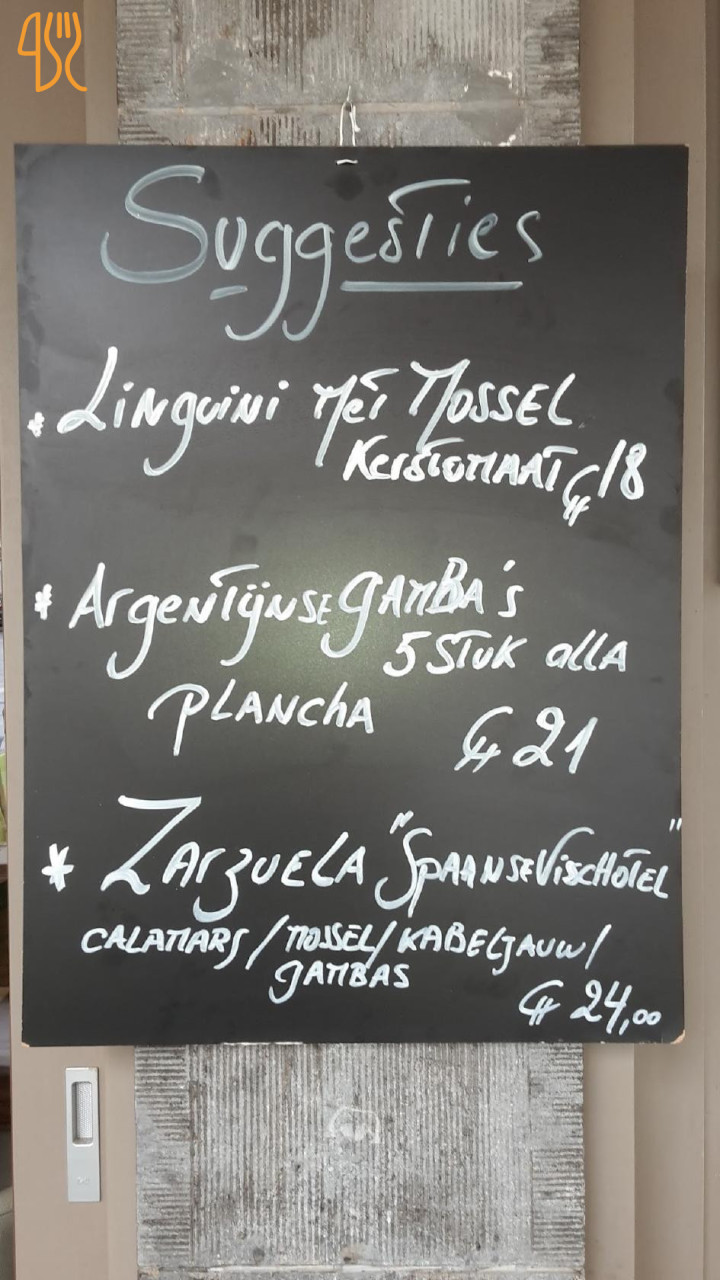 Suggesties
* Linguini met Mossel
Kerstomaat € 18
* Argentijnse Gamba's
5 stuk alla
plancha € 21
* Zarzuela "Spaanse Vischotel"
calamars / mossel / kabeljauw /
gambas
€ 24,00